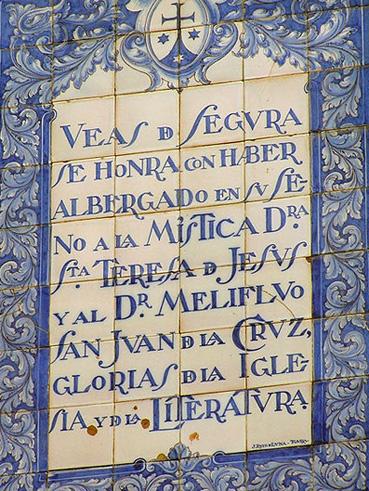 VEAS D SEGVRA
SE HONRA CON HABER
ALBERGADO EN SV SE-
NO A LA MISTICA DRA
STA TERESA D JESUS
Y AL DR MELIFLVO
SAN JVAN D LA CRVZ,
GLORIAS D LA IGLE-
SIA Y D LA LITERATVRA.